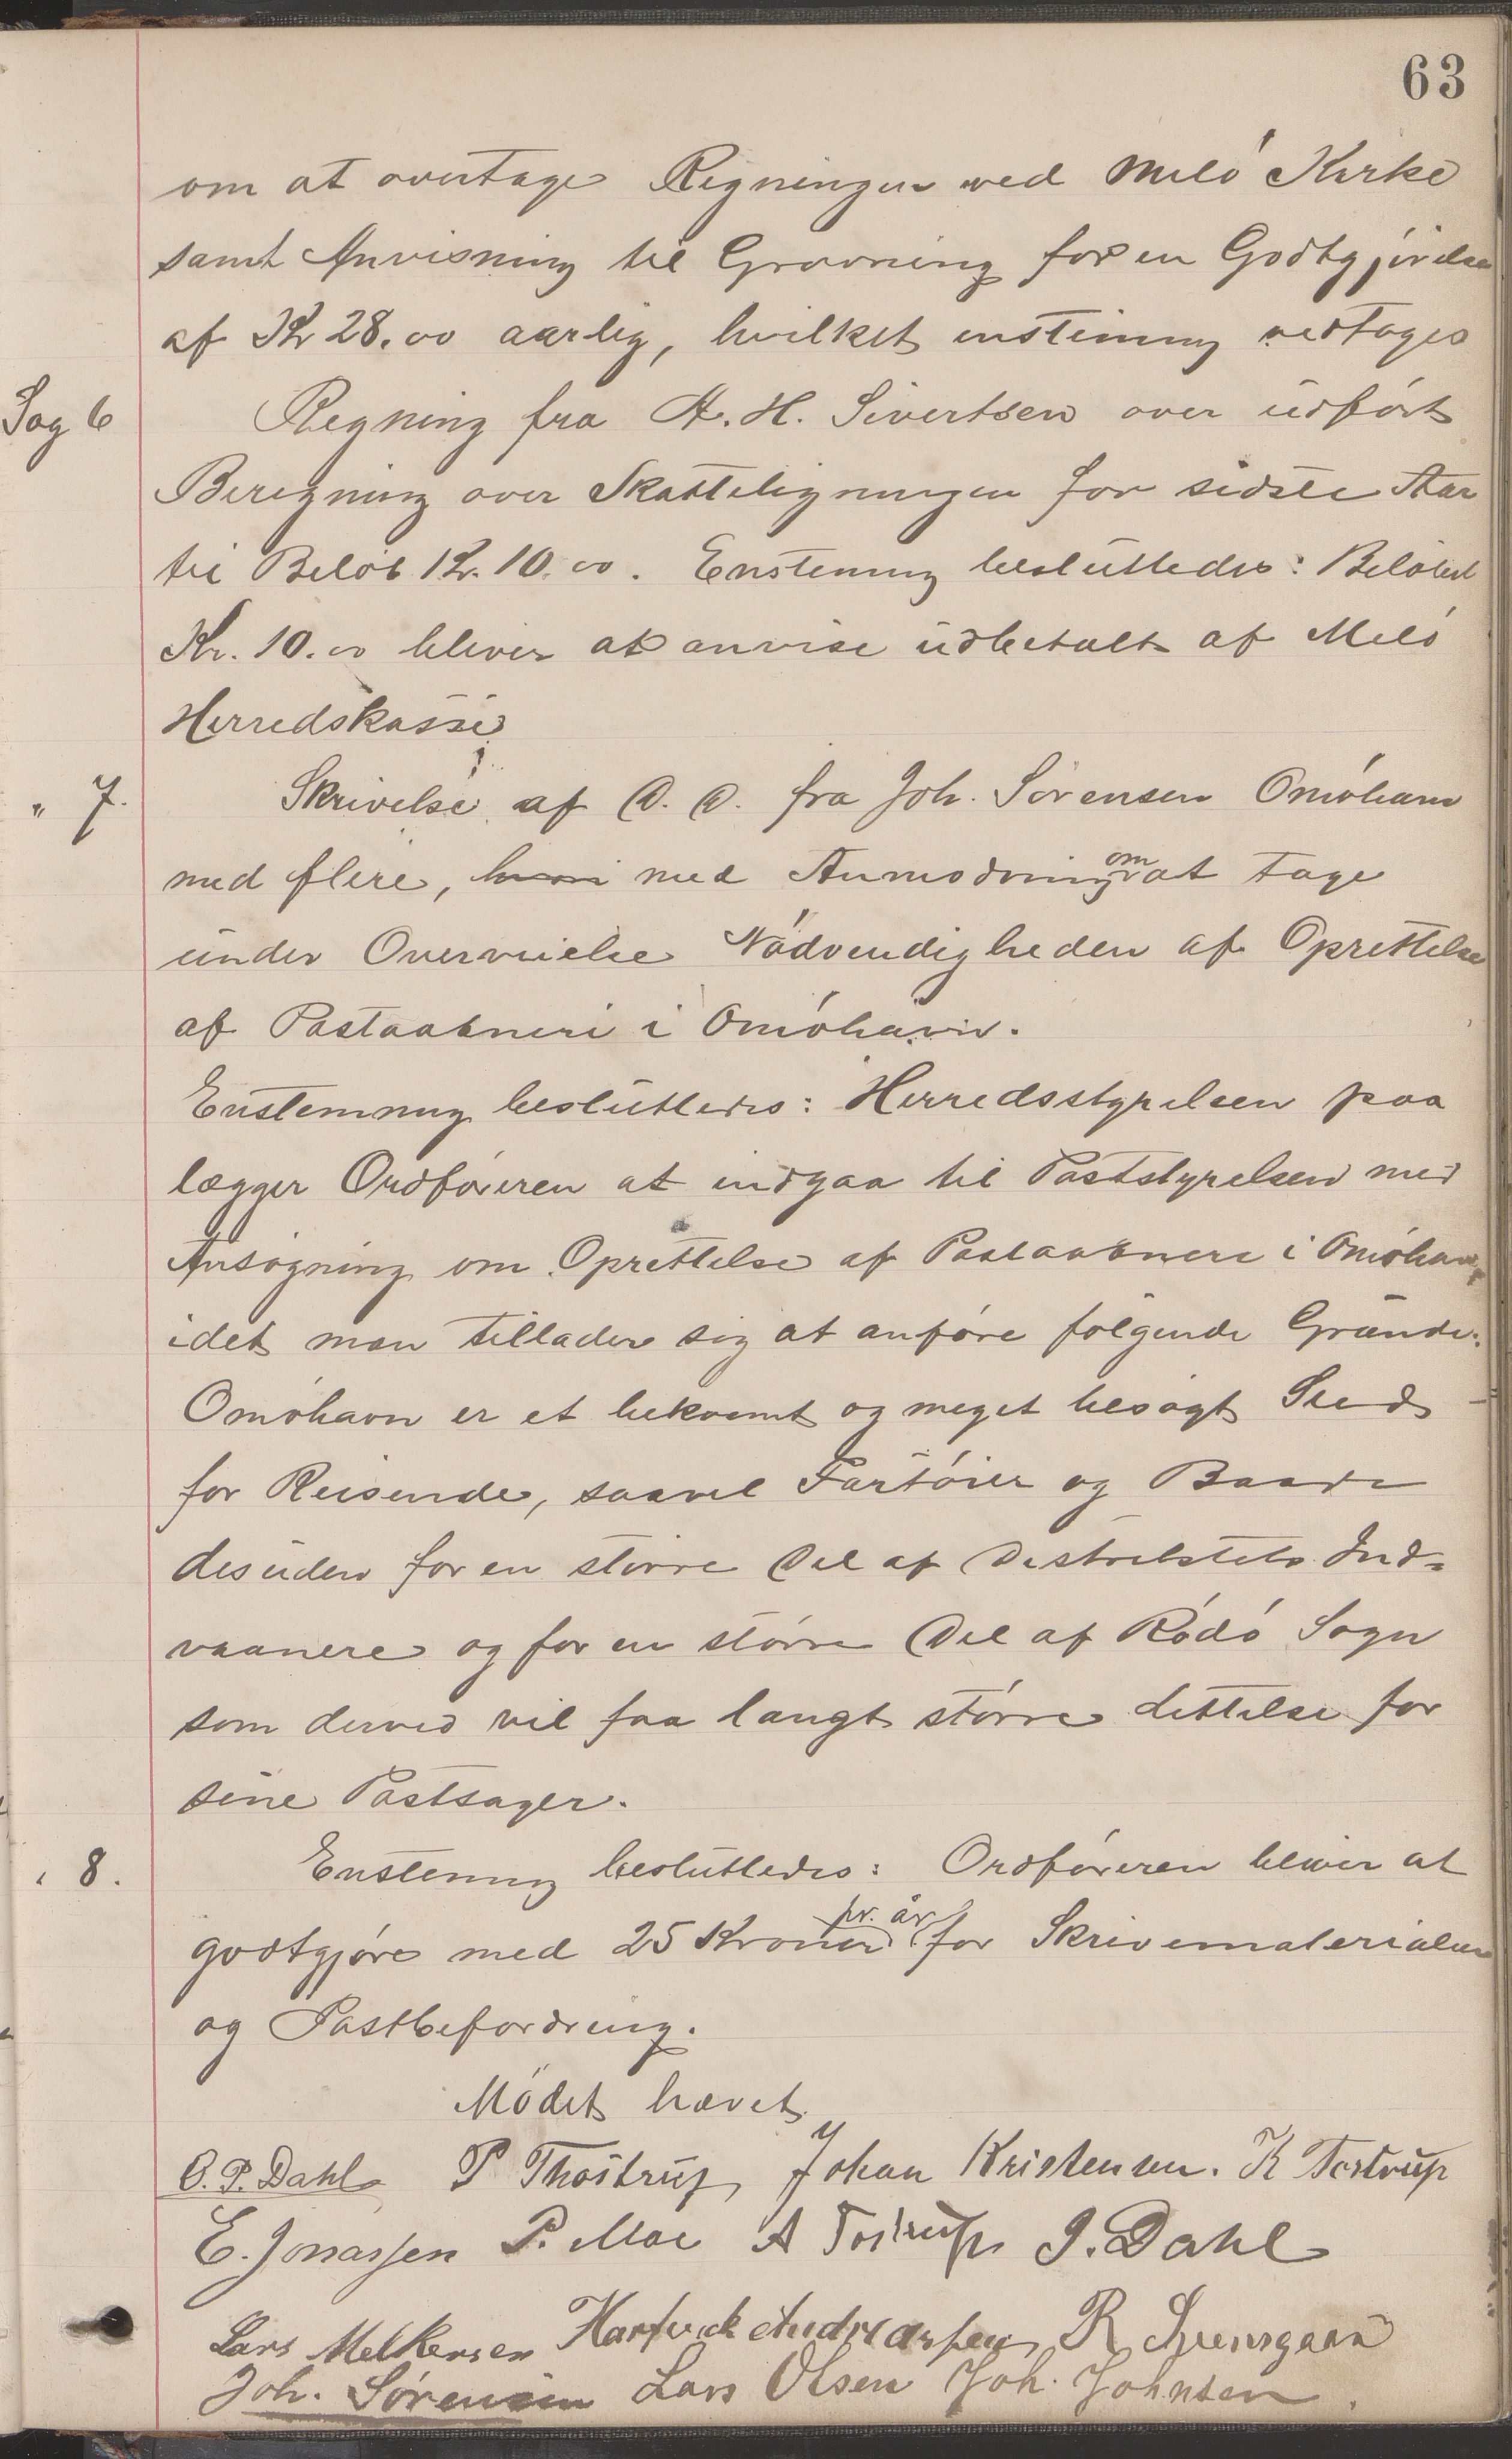 63
om at overtage Rigningen ved Melö Kirke
samt Anvisning til Gravning for en Godtgjörelse
af Kr 28.00 aarlig, hvilket enstemmig vedtoges
Sag 6 Regning fra A. H. Sivertsen over udfört
Beregning over Skatteligningen for sidste Aar
til Belöb Kr. 10.00. Enstemmig besluttedes: Belöbet
Kr. 10.00 bliver at anvise udbetalt af Melö
Herredskasse
" 7. Skrivelse af D. D. fra Joh. Sörensen Omöhavn
med flere, med Anmodning om at tage
under Overveielse Nödvendigheden af Oprettelse
af Postaabneri i Omöhavn.
Enstemmig besluttedes: Herredsstyrelsen paa
lægger Ordföreren at indgaa til Poststyrelsen med
Ansögning om Oprettelse af Postaabneri i Omöhavn,
idet man tillader sig at anföre fölgende Grunde:
Omöhavn er et bekvemt og meget besögt Sted
for Reisende, saavel Fartöier og Baade
desuden for en större Del af Distriktets Ind-
vaanere og for en större Del af Rödö Sogn
som derved vil faa langt större Lettelse for
sine Postsager.
" 8. Enstemmig besluttedes: Ordföreren bliver at
godtgjöre med 25 Kroner pr. år for Skrivematerialier
og Postbefordring.
Mödet hævet.
O. P. Dahl P Thostrup Johan Kristensen. K Tostrup
E. Jonassen P. Moe A Tostrup J. Dahl
Lars Melkersen Hartvik Andreassen R Svensgaard
Joh. Sørensen Lars Olsen Joh. Johnsen.